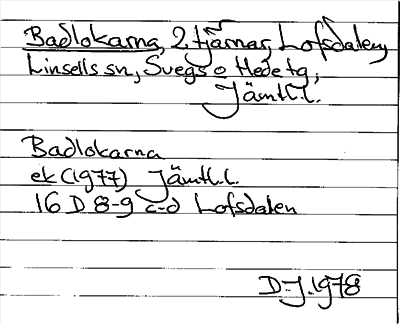 Badlokarna, 2 tjärnar, Lofsdalen,
Linsells sn, Svegs o Hede tg,
Jämtl. l.
Badlokarna
ek (1977) Jämtl. l.
16 D 8-9 c-d Lofsdalen
D.J. 1978